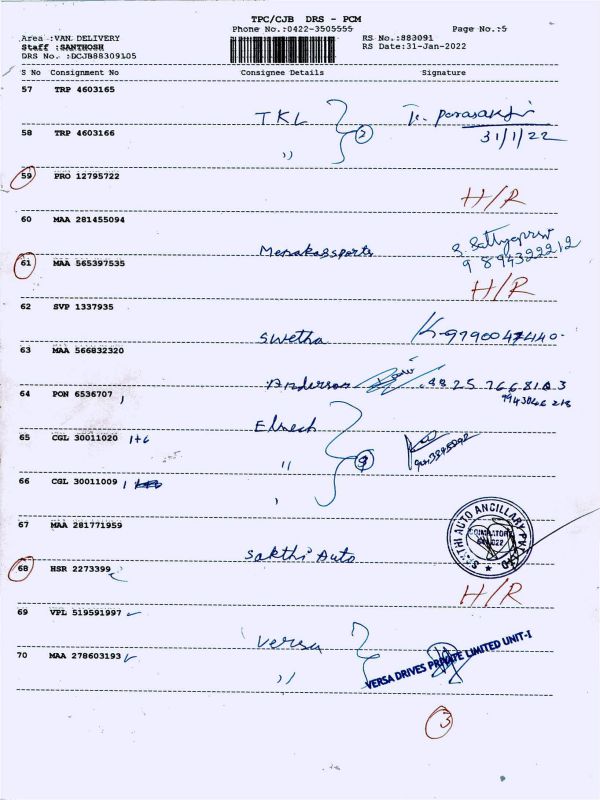 TPC/CJB DRS - PCM
Phone No.:0422-3505555 Page No.:5
Area :VAN DELIVERY RS No.:883091
Staff :SANTHOSH RS Date:31-Jan-2022
DRS No. :DCJB88309105
S No Consignment No Consignee Details Signature
57 TRP 4603165
TKL
2
31/1/22
58 TRP 4603166
"
59 PRO 12795722
H/R
60 MAA 281455094
Menakassports
9894322212
61 MAA 565397535
H/R
62 SVP 1337935
Swetha 9790047440
63 MAA 566832320
Anderson
64 PON 6536707
Elmech
65 CGL 30011020 1+6
"
9
66 CGL 30011009 1
67 MAA 281771959
Sakthi Auto
SAKTHI AUTO ANCILLARY
COIMBATORE
68 HSR 2273399
H/R
69 VPL 519591997
Versa
VERSA DRIVES PRIVATE LIMITED UNIT-I
70 MAA 278603193
"
3